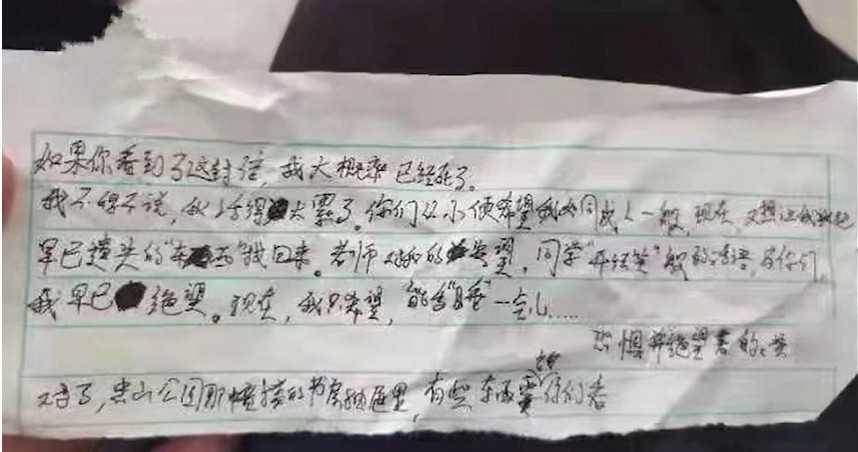 如果你看到了这封信，我大概率已经死了。
我不得不说，我活得太累了。你们从小便希望我如同成人一般，现在，又想让我把
早已遗失的“东西”找回来。老师对我的失望，同学“开玩笑”般的话语，与你们，
我早已绝望。现在，我只希望，能多“睡”一会儿.....
恐惧并绝望着的
对了，忠山公园那幢楼的书房抽屉里，有些东西要你们看